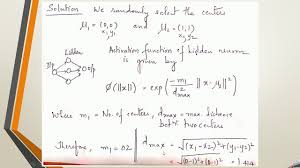 Solution We randomly select the centers
μ₁ = (0,0) and μ₂ = (1,1)
x₁ y₁ x₂ y₂
Hidden
Activation function of hidden neurons
is given by
I/p O/p
φ(||x||) = exp(-m₁/d²max ||x-μᵢ||²)
Where m₁ = No. of centers, dmax = max. distance
betⁿ two centers
Therefore, m₁ = 02 | dmax = √(x₁-x₂)²+(y₁-y₂)²
= √(0-1)²+(0-1)²